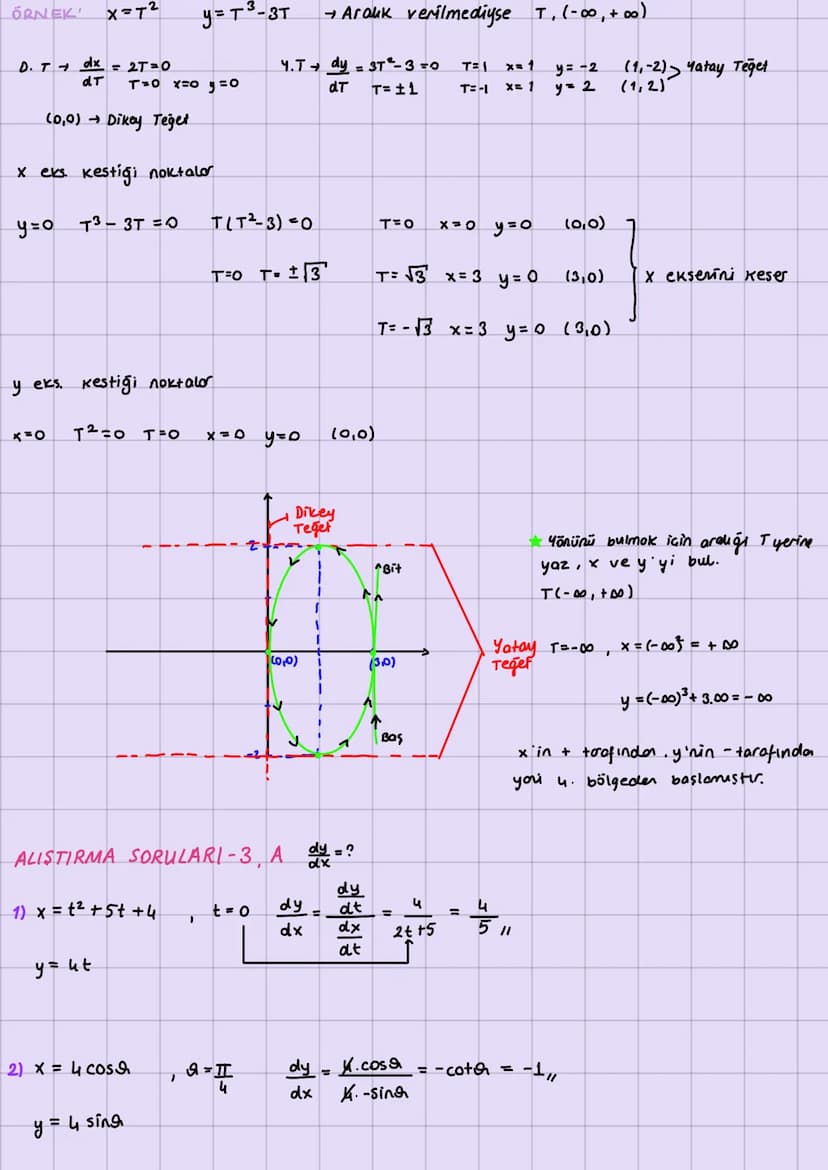 ÖRNEK: x=T² y=T³-3T → Aralık verilmediyse T, (-∞, +∞)
D.T → dx/dT = 2T=0 T=0 x=0 y=0
Y.T → dy/dT = 3T²-3=0 T=±1
T=1 x=1 y=-2 (1,-2)
T=-1 x=1 y=2 (1,2)
> Yatay Teğet
(0,0) → Dikey Teğet
x eks. kestiği noktalar
y=0 T³-3T=0 T(T²-3)=0 T=0 x=0 y=0 (0,0)
T=0 T=±√3 T=√3 x=3 y=0 (3,0) x eksenini keser
T=-√3 x=3 y=0 (3,0)
y eks. kestiği noktalar
x=0 T²=0 T=0 x=0 y=0 (0,0)
Dikey
Teğet
2
Bit
(0,0)
(3,0)
Yatay
Teğet
Baş
-2
★ Yönünü bulmak için aralığı T yerine
yaz, x ve y'yi bul.
T(-∞,+∞)
T=-∞, x=(-∞)² = +∞
y=(-∞)³+3.∞=-∞
x'in + tarafından, y'nin - tarafından
yani 4. bölgeden başlamıştır.
ALIŞTIRMA SORULARI-3, A dy/dx=?
1) x=t²+5t+4 , t=0 dy/dx = (dy/dt)/(dx/dt) = 4/(2t+5) = 4/5 //
y=4t
2) x = 4cosθ , θ=π/4 dy/dx = 4.cosθ/4.-sinθ = -cotθ = -1 //
y = 4 sinθ